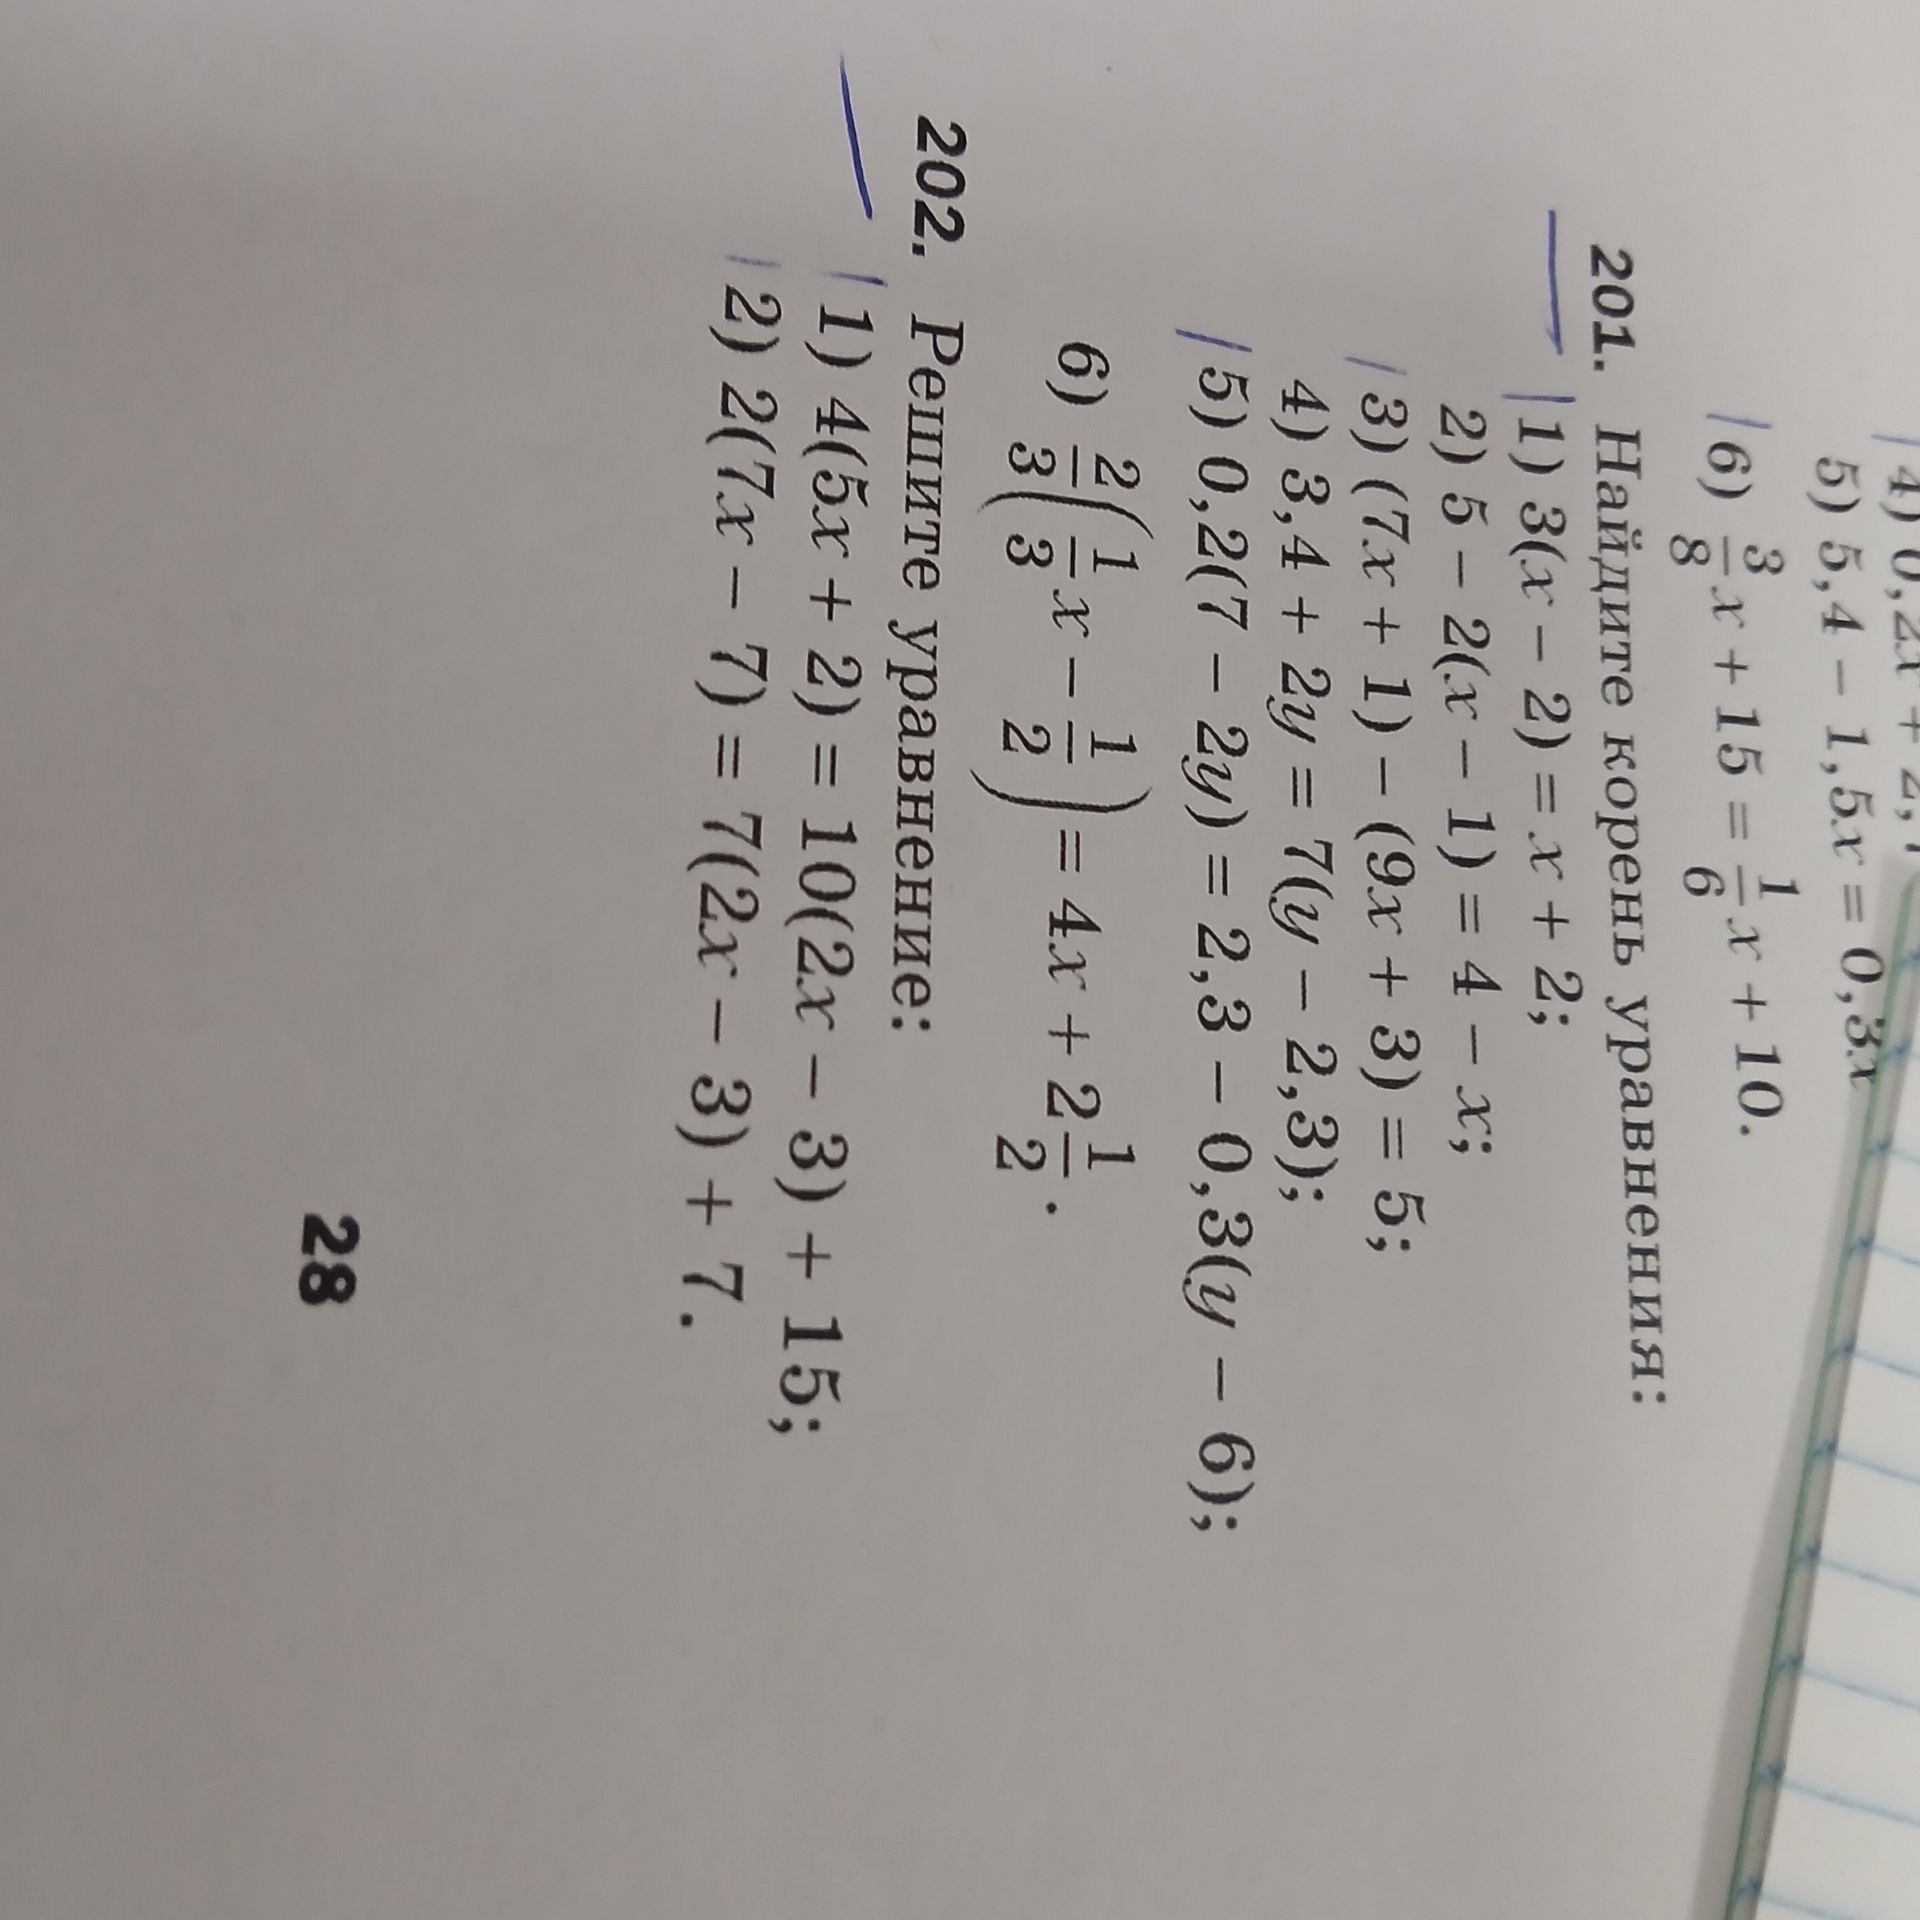 5) 5,4 − 1,5x = 0,3x
6) 3/8 x + 15 = 1/6 x + 10.
201. Найдите корень уравнения:
1) 3(x − 2) = x + 2;
2) 5 − 2(x − 1) = 4 − x;
3) (7x + 1) − (9x + 3) = 5;
4) 3,4 + 2y = 7(y − 2,3);
5) 0,2(7 − 2y) = 2,3 − 0,3(y − 6);
6) 2/3(1/3 x − 1/2) = 4x + 2 1/2.
202. Решите уравнение:
1) 4(5x + 2) = 10(2x − 3) + 15;
2) 2(7x − 7) = 7(2x − 3) + 7.
28